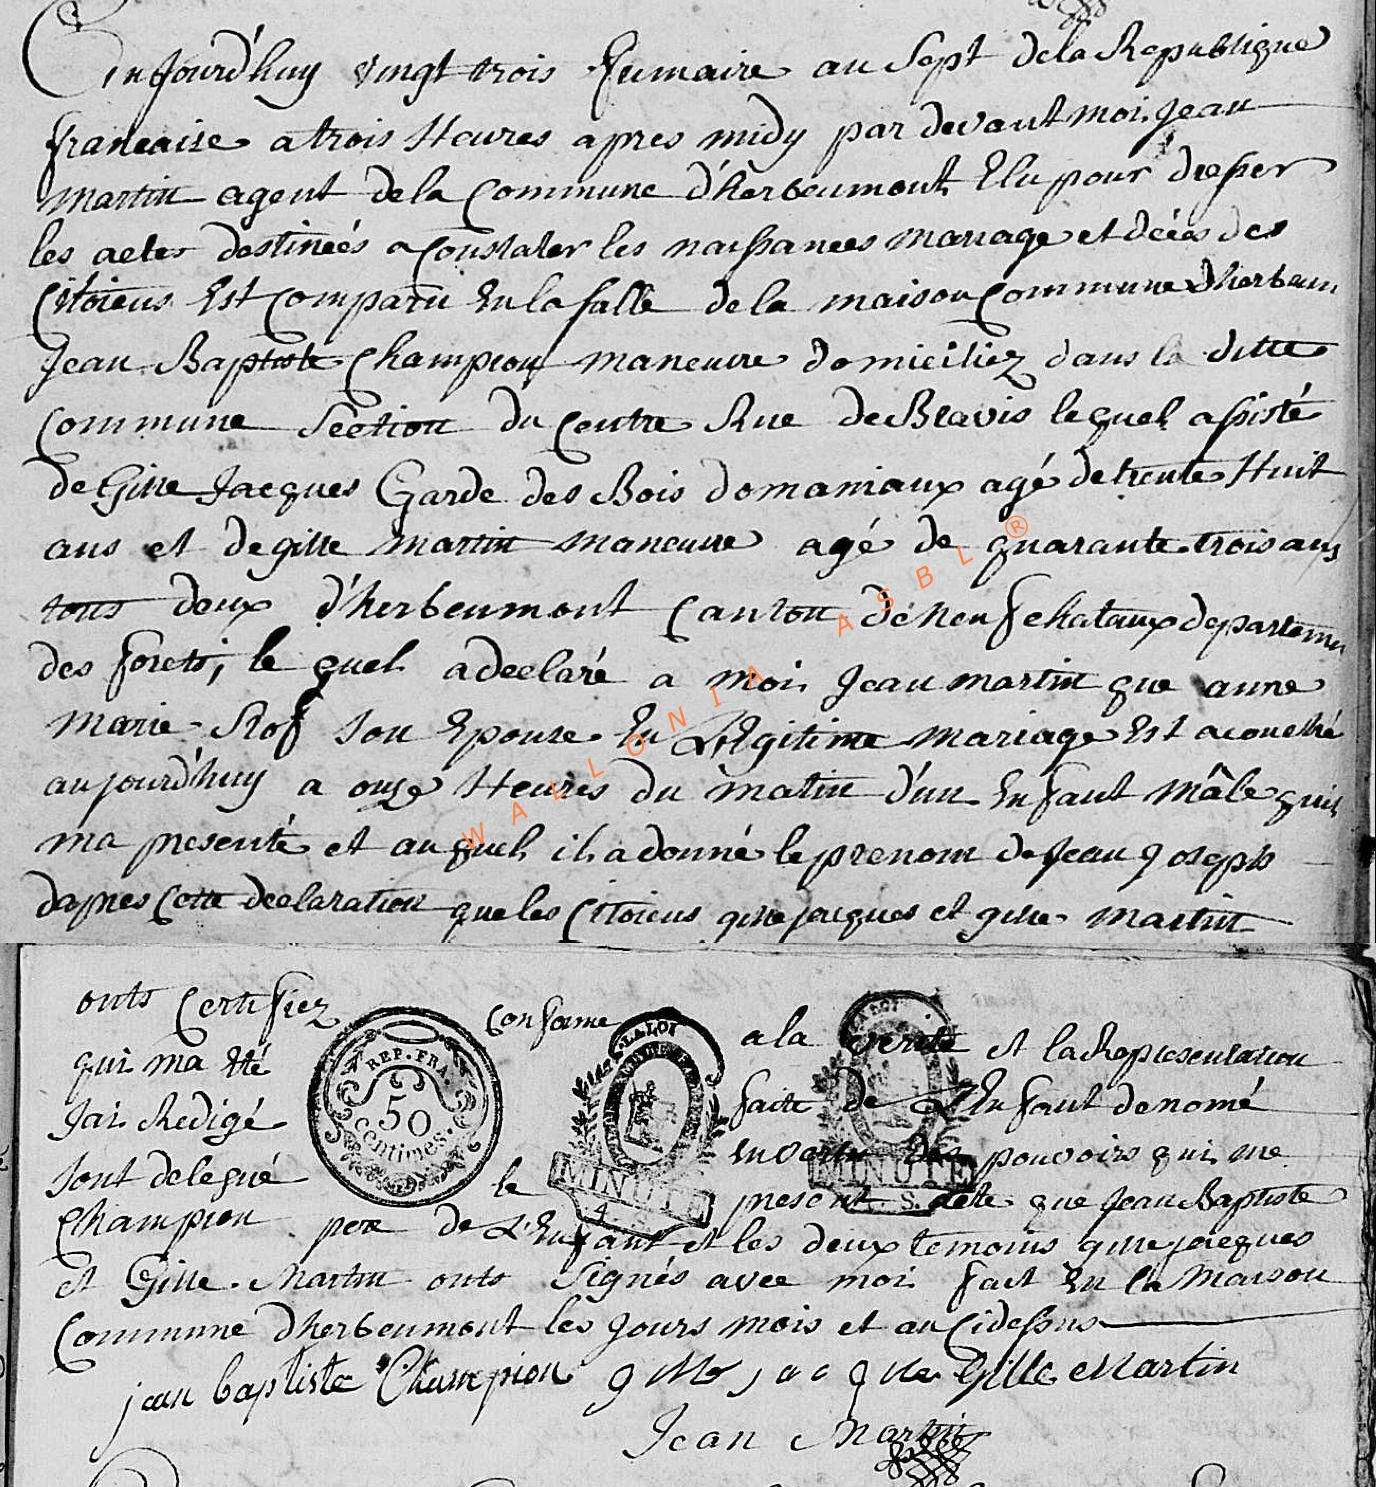 Cejourd'huy vingt trois frimaire an Sept de la Republique
francaise a trois Heures apres midy par devant moi jean
martin agent de la Commune d'herbeumont Elu pour dresser
les actes destineés a Constater les naissances mariage et décés des
Citoiens Est Comparu En la salle de la maison Commune d'herbeum
Jean Baptiste Champion maneuvre domiciliez dans la ditte
Commune Section du Centre Rue de lequel assisté
de Gille Jacques Garde des Bois domaniaux agé de trente Huit
ans et de gille martin maneuvre agé de quarante trois ans
tous deux d'herbeumont Canton de neufchataux departemen
des forets, le quel a declaré a moi jean martin que anne
marie Rof son Epouse En Légitime mariage Est acouché
aujourd'huy a onze Heures du matin d'un Enfant mâle quil
ma presenté et au quel il a donné le prenom de jean joseph
dapres Cette declaration que les Citoiens gille jacques et gille martin
onts Certifiez Conforme a la verité et la Representation
qui ma été faite de L'Enfant denomé
Jai Redigé en vertu des pouvoirs qui me
sont delegué le present acte que jean Baptiste
Champion pere de L'Enfant et les deux temoins gille jacques
et Gille Martin onts Signés avec moi fait En la Maison
Commune d'herbeumont les jours mois et an Cidessus
jean baptiste Champion gille jacque Gille Martin
Jean Martin
REP. FRA.
50
centimes.
LA LOI
MINUTE
4
LA LOI
MINUTE
S.
WALLONIA ASBL ®